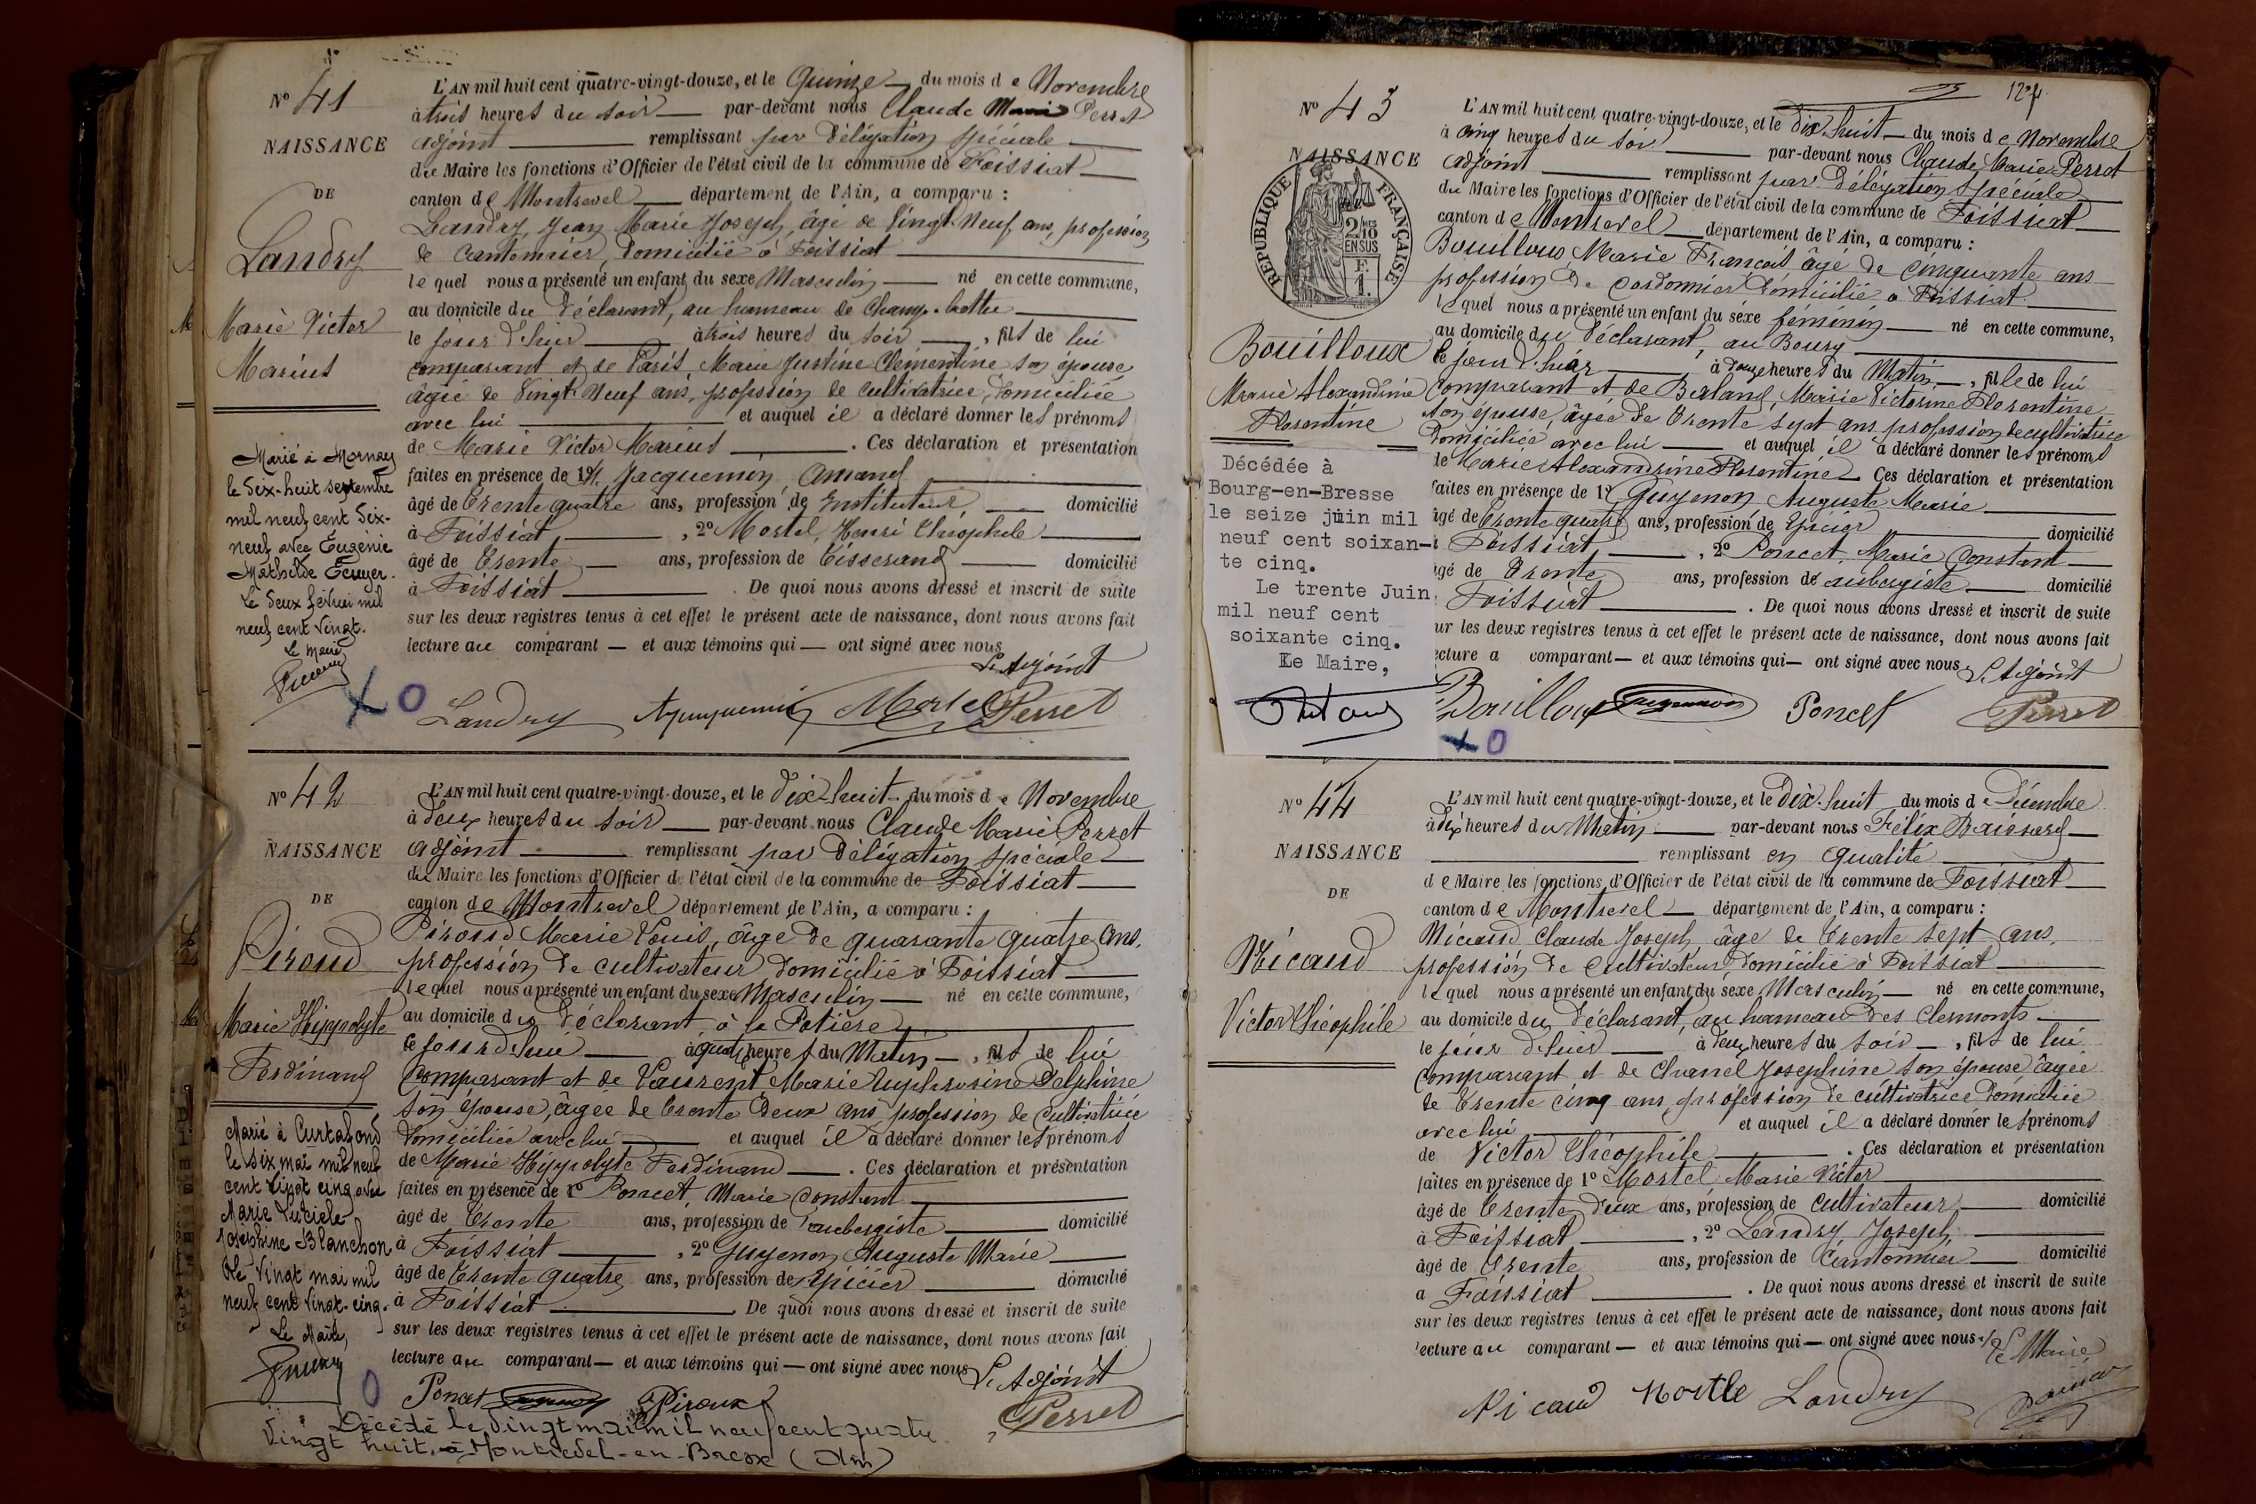 N° 41
NAISSANCE
DE
Landry
Marie Victor
Marius
L'AN mil huit cent quatre-vingt-douze, et le Quinze du mois de Novembre
à trois heures du soir par-devant nous Claude Marie Perret
adjoint remplissant par délégation spéciale
du Maire les fonctions d'Officier de l'état civil de la commune de Foissiat
canton de Montrevel département de l'Ain, a comparu :
Landry Jean Marie Joseph, âgé de Vingt Neuf ans, profession
de Cantonnier, domicilié à Foissiat
lequel nous a présenté un enfant du sexe Masculin né en cette commune,
au domicile du déclarant, au hameau de
le jour d'hier à trois heures du soir, fils de lui
comparant et de Paris, Marie Justine Clémentine son épouse
âgée de Vingt Neuf ans, profession de cultivatrice, domiciliée
avec lui et auquel il a déclaré donner les prénoms
de Marie Victor Marius. Ces déclaration et présentation
faites en présence de 1° Jacquemin, Amand
âgé de trente quatre ans, profession de Instituteur, domicilié
à Foissiat, 2° Mortel, Henri Théophile
âgé de trente ans, profession de tisserand domicilié
à Foissiat. De quoi nous avons dressé et inscrit de suite
sur les deux registres tenus à cet effet le présent acte de naissance, dont nous avons fait
lecture au comparant — et aux témoins qui — ont signé avec nous
L'Adjoint
Landry Mortel Perret
Marié à Mornay
le dix-huit septembre
mil neuf cent dix-
neuf avec Eugénie
Mathilde Ecuyer.
Le deux février mil
neuf cent vingt.
Le Maire
N° 42
NAISSANCE
DE
Piroud
Marie Hippolyte
Ferdinand
L'AN mil huit cent quatre-vingt-douze, et le dix-huit du mois de Novembre
à deux heures du soir par-devant nous Claude Marie Perret
adjoint remplissant par délégation spéciale
du Maire les fonctions d'Officier de l'état civil de la commune de Foissiat
canton de Montrevel département de l'Ain, a comparu :
Piroud Marie Louis, âgé de quarante quatre ans,
profession de cultivateur domicilié à Foissiat
lequel nous a présenté un enfant du sexe Masculin né en cette commune,
au domicile du déclarant, à la Potière
le jour d'hui à quatre heures du Matin, fils de lui
comparant et de Laurent Marie Euphrosine Delphine
son épouse, âgée de trente deux ans profession de cultivatrice
domiciliée avec lui et auquel il a déclaré donner les prénoms
de Marie Hippolyte Ferdinand. Ces déclaration et présentation
faites en présence de 1° Poncet, Marie Constant
âgé de trente ans, profession de aubergiste domicilié
à Foissiat, 2° Guyenon Auguste Marie
âgé de trente quatre ans, profession de Epicier domicilié
à Foissiat. De quoi nous avons dressé et inscrit de suite
sur les deux registres tenus à cet effet le présent acte de naissance, dont nous avons fait
lecture au comparant — et aux témoins qui — ont signé avec nous
L'Adjoint
Poncet Piroud Perret
Marié à Curtafond
le six mai mil neuf
cent vingt cinq avec
Marie Luciele
Joséphine Blanchon
Le vingt mai mil
neuf cent vingt-cinq.
Le Maire,
Décédé le vingt mai mil neuf cent quatre
vingt huit, à Montrevel-en-Bresse (Ain)
124
N° 43
NAISSANCE
REPUBLIQUE FRANÇAISE
2/10
EN SUS
F.
1.
Bouilloux
Marie Alexandrine
Florentine
L'AN mil huit cent quatre-vingt-douze, et le dix huit du mois de Novembre
à cinq heures du soir par-devant nous Claude Marie Perret
adjoint remplissant par délégation spéciale
du Maire les fonctions d'Officier de l'état civil de la commune de Foissiat
canton de Montrevel département de l'Ain, a comparu :
Bouilloux Marie François âgé de cinquante ans
profession de Cordonnier domicilié à Foissiat
lequel nous a présenté un enfant du sexe féminin né en cette commune,
au domicile du déclarant, au Bourg
le jour d'hier à douze heures du Matin, fille de lui
comparant et de Berland, Marie Victorine Florentine
son épouse, âgée de trente sept ans profession de cultivatrice
domiciliée avec lui et auquel il a déclaré donner les prénoms
de Marie Alexandrine Florentine Ces déclaration et présentation
faites en présence de 1° Guyenon Auguste Marie
âgé de trente quatre ans, profession de Epicier domicilié
Foissiat, 2° Poncet, Marie Constant
âgé de trente ans, profession de aubergiste domicilié
Foissiat. De quoi nous avons dressé et inscrit de suite
ur les deux registres tenus à cet effet le présent acte de naissance, dont nous avons fait
ecture a comparant — et aux témoins qui — ont signé avec nous
L'Adjoint
Bouilloux Poncet Perret
Décédée à
Bourg-en-Bresse
le seize juin mil
neuf cent soixan-
te cinq.
Le trente Juin
mil neuf cent
soixante cinq.
Le Maire,
N° 44
NAISSANCE
DE
Nicaud
Victor Théophile
L'AN mil huit cent quatre-vingt-douze, et le Dix-huit du mois de Décembre
à dix heures du Matin par-devant nous Félix Boissard
remplissant en qualité
de Maire les fonctions d'Officier de l'état civil de la commune de Foissiat
canton de Montrevel département de l'Ain, a comparu :
Nicaud Claude Joseph âgé de trente sept ans,
profession de Cultivateur domicilié à Foissiat
lequel nous a présenté un enfant du sexe Masculin né en cette commune,
au domicile du déclarant, au hameau des Clermonts
le jour d'hier à deux heures du soir, fils de lui
comparant et de Chanel Joséphine son épouse âgée
de trente cinq ans, profession de cultivatrice domiciliée
avec lui et auquel il a déclaré donner les prénoms
de Victor Théophile. Ces déclaration et présentation
faites en présence de 1° Mortel Marie Victor
âgé de trente deux ans, profession de cultivateur domicilié
à Foissiat, 2° Landry Joseph
âgé de trente ans, profession de Cantonnier domicilié
a Foissiat. De quoi nous avons dressé et inscrit de suite
sur les deux registres tenus à cet effet le présent acte de naissance, dont nous avons fait
lecture au comparant — et aux témoins qui — ont signé avec nous
Le Maire
Nicaud Mortle Landry